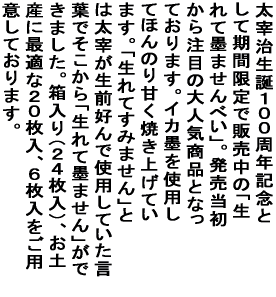 太宰治生誕１００周年記念と
して期間限定で販売中の「生
れて墨ませんべい」。発売当初
から注目の大人気商品となっ
ております。イカ墨を使用し
てほんのり甘く焼き上げてい
ます。「生れてすみません」と
は太宰が生前好んで使用していた言
葉でそこから「生れて墨ません」がで
きました。箱入り（２４枚入）、お土
産に最適な２０枚入、６枚入をご用
意しております。